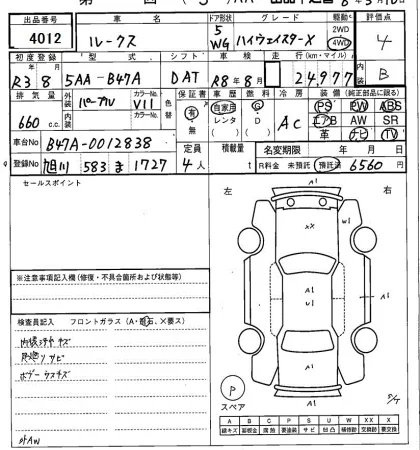 出品番号 車名 ドア形状 グレード 駆動 評価点
4012 ルークス 5 WG ハイウェイスターX 2WD 4WD 4
初度登録 型式 シフト 車検 走行(km・マイル) 内装
R3 8 5AA-B47A DAT R8 8月 24,977 B
排気量 外装 パープル カラーNo V11 色替 保証書 車歴 燃料 冷房 装備(純正部品に限る)
660 c.c. 内装 カラーNo 有・無 自家用 レンタ G D AC PS PW ABS
エアB AW SR
革 ナビ TV
車台No B47A-0012838 定員 積載量 名変期限 年 月 日
登録No 旭川 583 ま 1727 4人 t R料金 未預託 預託済 6560円
セールスポイント
左 右
A1
XX W1
A1 A1
A1
U1
A1
※注意事項記入欄(修復・不具合箇所および状態等)
検査員記入 フロントガラス(A・飛石、×要ス)
内張ヨゴレ キズ
下廻り サビ
ボデー ウスキズ
社外AW
P
スペア
A B C P S U W X XX